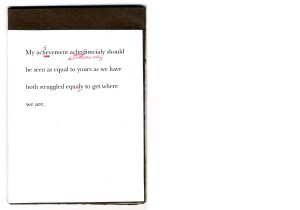 My achevement achedimcialy should
be seen as equal to yours as we have
both struggled equaly to get where
we are.